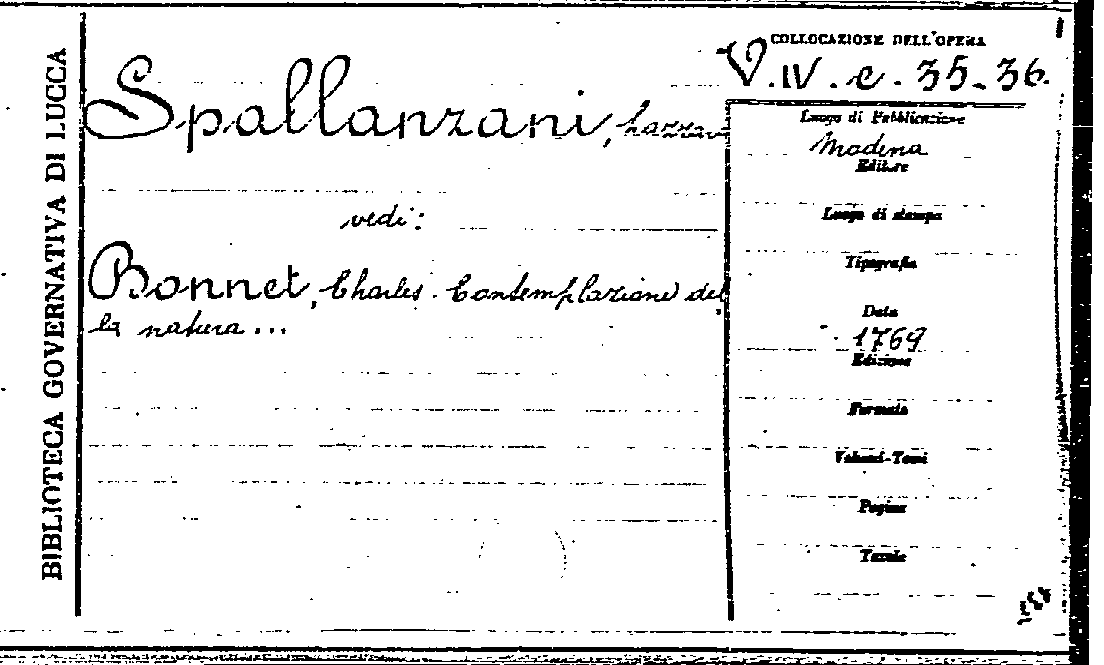 BIBLIOTECA GOVERNATIVA DI LUCCA
COLLOCAZIONE DELL'OPERA
V.IV.c.35-36.
Spallanzani, Lazzaro
vedi:
Bonnet, Charles. Contemplazione del
la natura...
Luogo di Pubblicazione
Modena
Editore
Luogo di stampa
Tipografia
Data
1769
Edizione
Formato
Volumi-Tomi
Pagine
Tavole